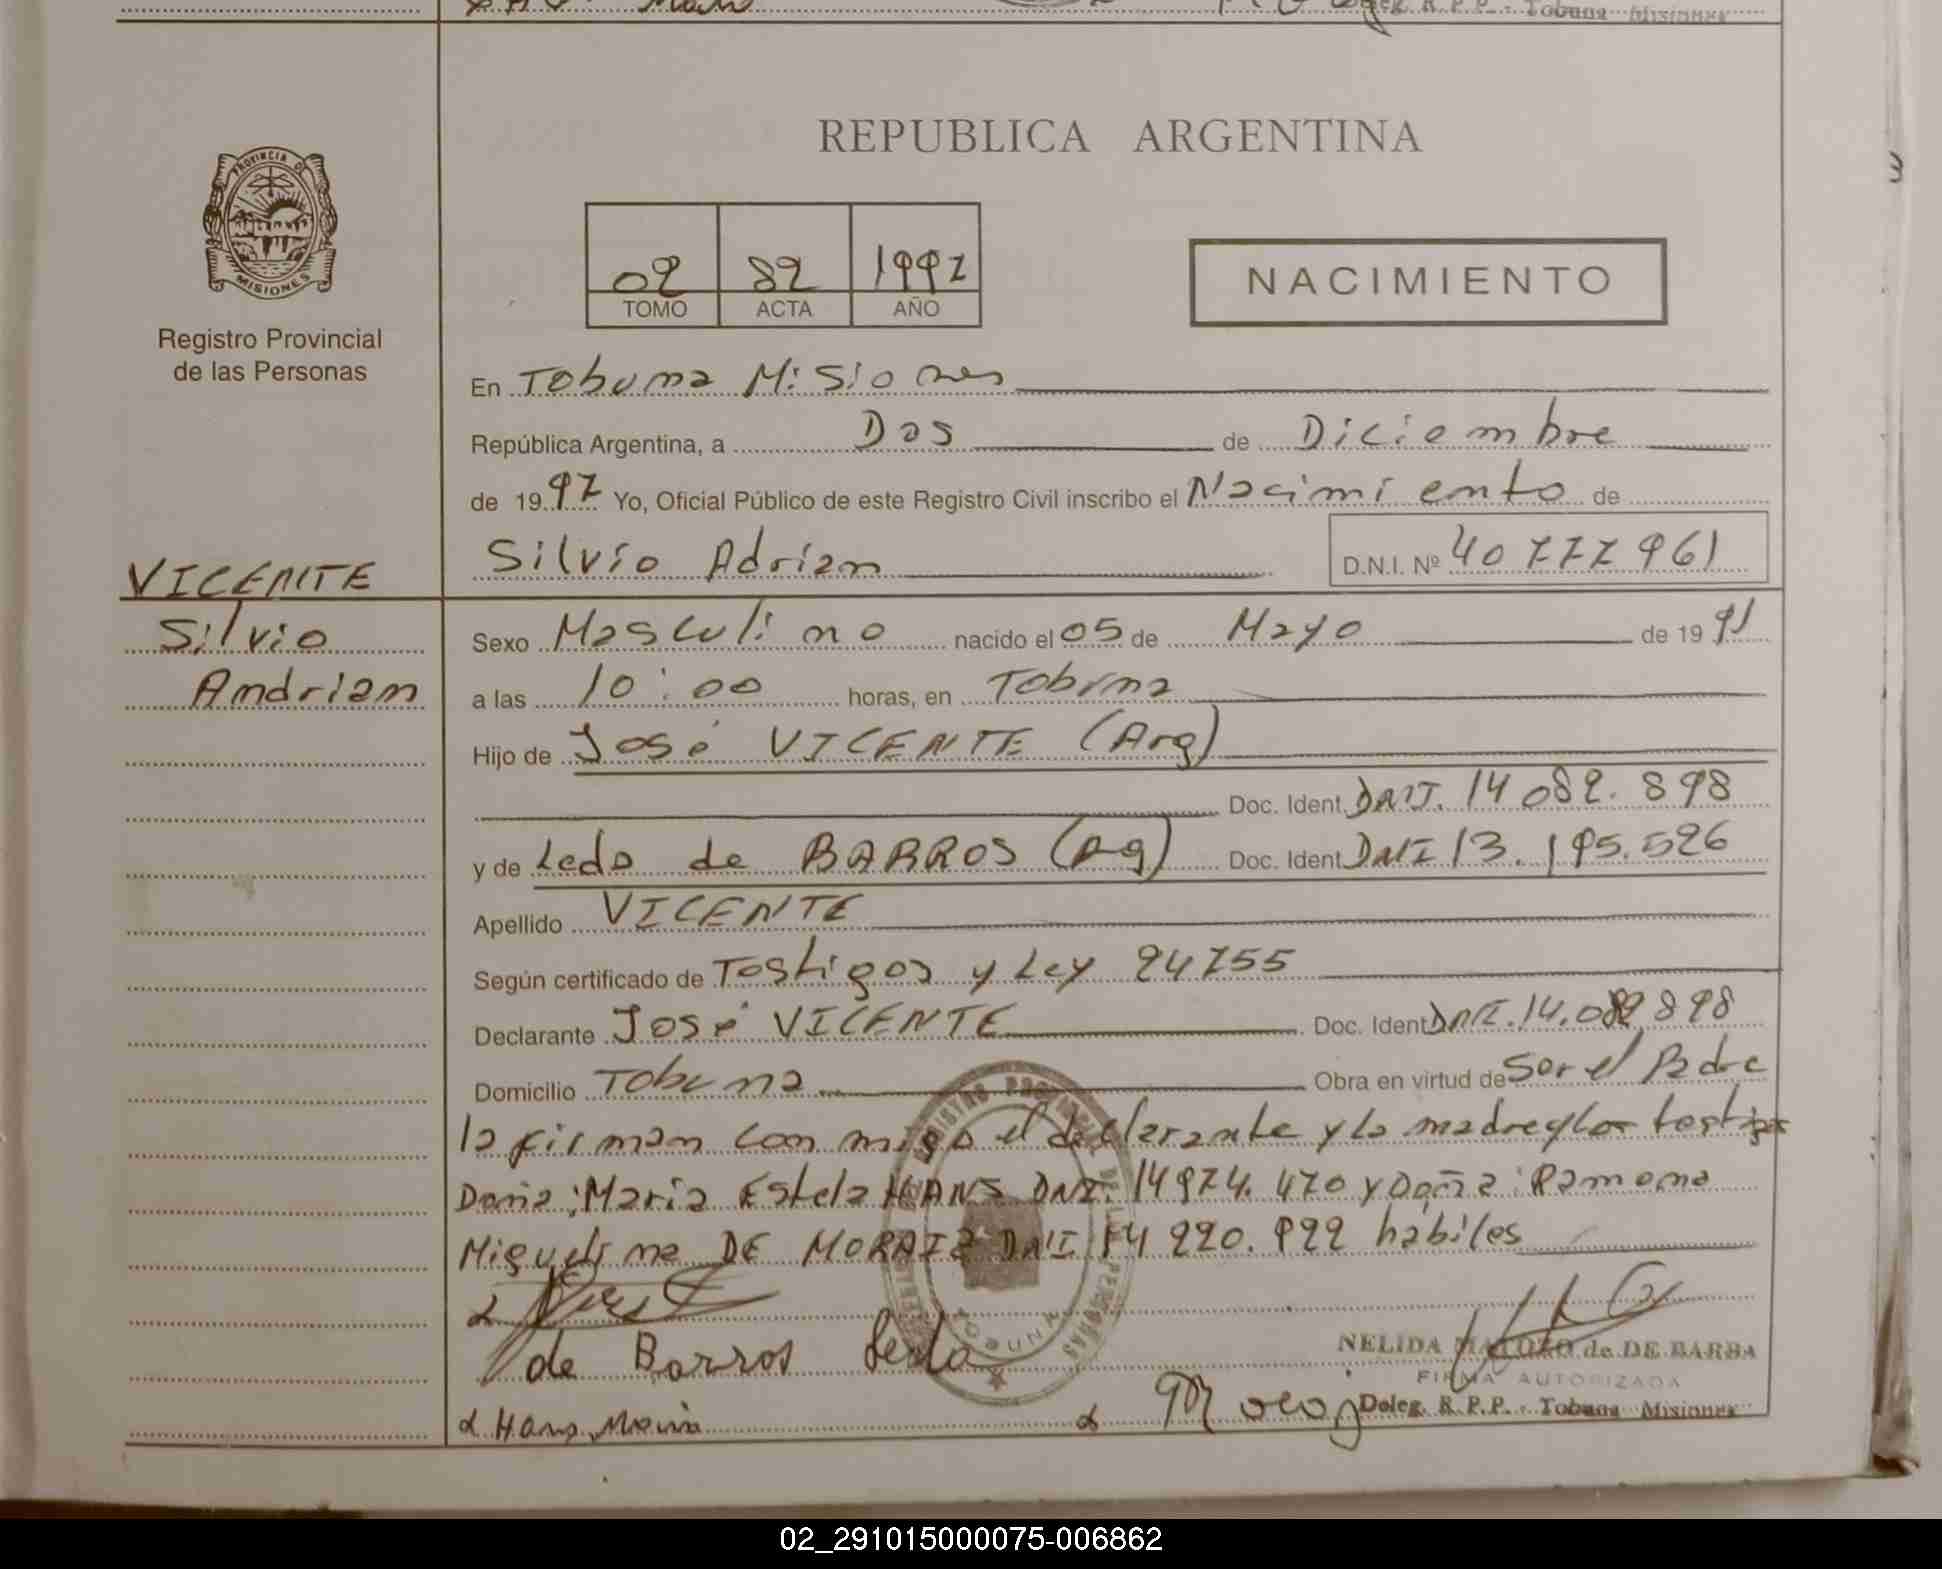 Deleg. R. P. P. - Tobuna Misiones
REPUBLICA ARGENTINA
PROVINCIA DE
MISIONES
02 82 1997
TOMO ACTA AÑO
NACIMIENTO
Registro Provincial
de las Personas
En Tobuna Misiones
República Argentina, a Dos de Diciembre
de 1997 Yo, Oficial Público de este Registro Civil inscribo el Nacimiento de
Silvio Adrian D.N.I. Nº 40 777 961
VICENTE
Silvio
Andrian
Sexo Masculino nacido el 05 de Mayo de 1991
a las 10:00 horas, en Tobuna
Hijo de José VICENTE (Arg)
Doc. Ident. DNI. 14 082. 898
y de Leda de BARROS (Ag) Doc. Ident. DNI 13.195.526
Apellido VICENTE
Según certificado de Testigos y Ley 24755
Declarante José VICENTE Doc. Ident. DNI. 14.082.898
Domicilio Tobuna Obra en virtud de Ser el Padre
la firman con migo el declarante y la madre y los testigos
Doña: Maria Estela HANS DNI. 14974. 470 y Doña: Ramona
Miguelina DE MORAIZ DNI 14 220. 922 habiles
de Barros Leda
NELIDA MATOZO de DE BARBA
FIRMA AUTORIZADA
Deleg. R. P. P. - Tobuna Misiones
Hans Maria
REGISTRO PROVINCIAL DE LAS PERSONAS
TOBUNA
02_291015000075-006862